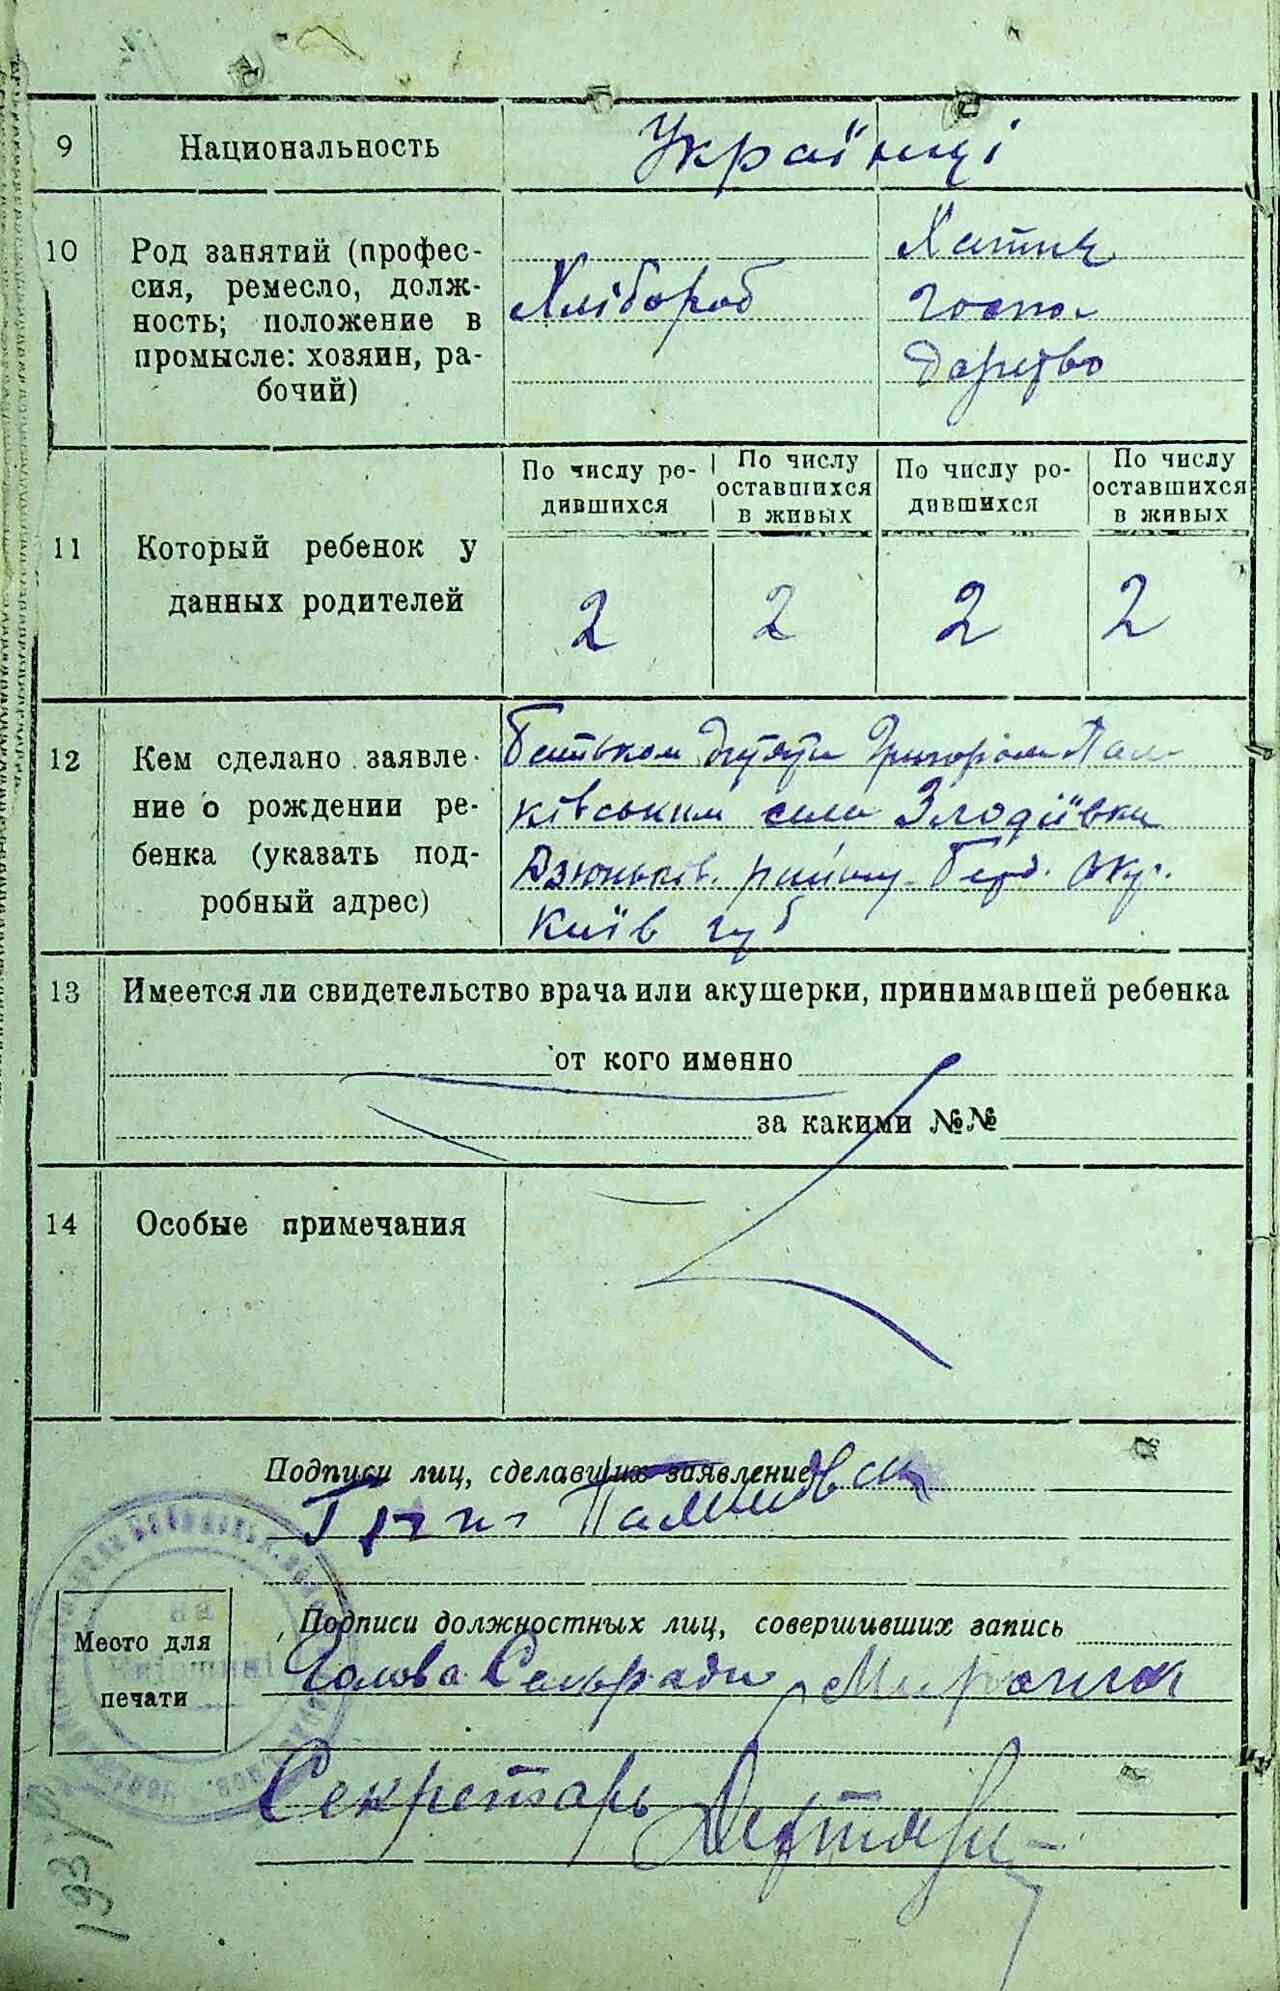 9 Национальность Українці
10 Род занятий (профес-
сия, ремесло, долж-
ность; положение в
промысле: хозяин, ра-
бочий)
Хлібороб
Хатнє
госпо-
дарство
11 Который ребенок у
данных родителей
По числу ро-
дившихся
По числу
оставшихся
в живых
По числу ро-
дившихся
По числу
оставшихся
в живых
2 2 2 2
12 Кем сделано заявле-
ние о рождении ре-
бенка (указать под-
робный адрес)
Батьком дитяти Григорієм Пал-
ківським села Злодіївки
Дзюньков. району Берд. окр.
Київ губ
13 Имеется ли свидетельство врача или акушерки, принимавшей ребенка
от кого именно
за какими №№
14 Особые примечания
Подписи лиц, сделавших заявление
Подписи должностных лиц, совершивших запись
Место для
печати
Голова Сельради
Секретарь
193